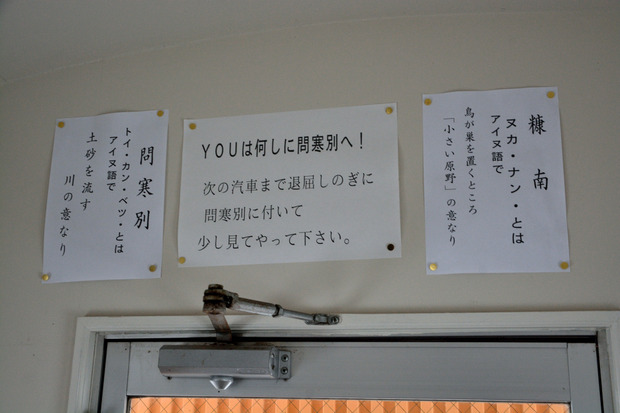 問寒別
トイ・カン・ベツ・とは
アイヌ語で
土砂を流す
川の意なり
YOUは何しに問寒別へ！
次の汽車まで退屈しのぎに
問寒別に付いて
少し見てやって下さい。
糠南
ヌカ・ナン・とは
アイヌ語で
鳥が巣を置くところ
「小さい原野」の意なり